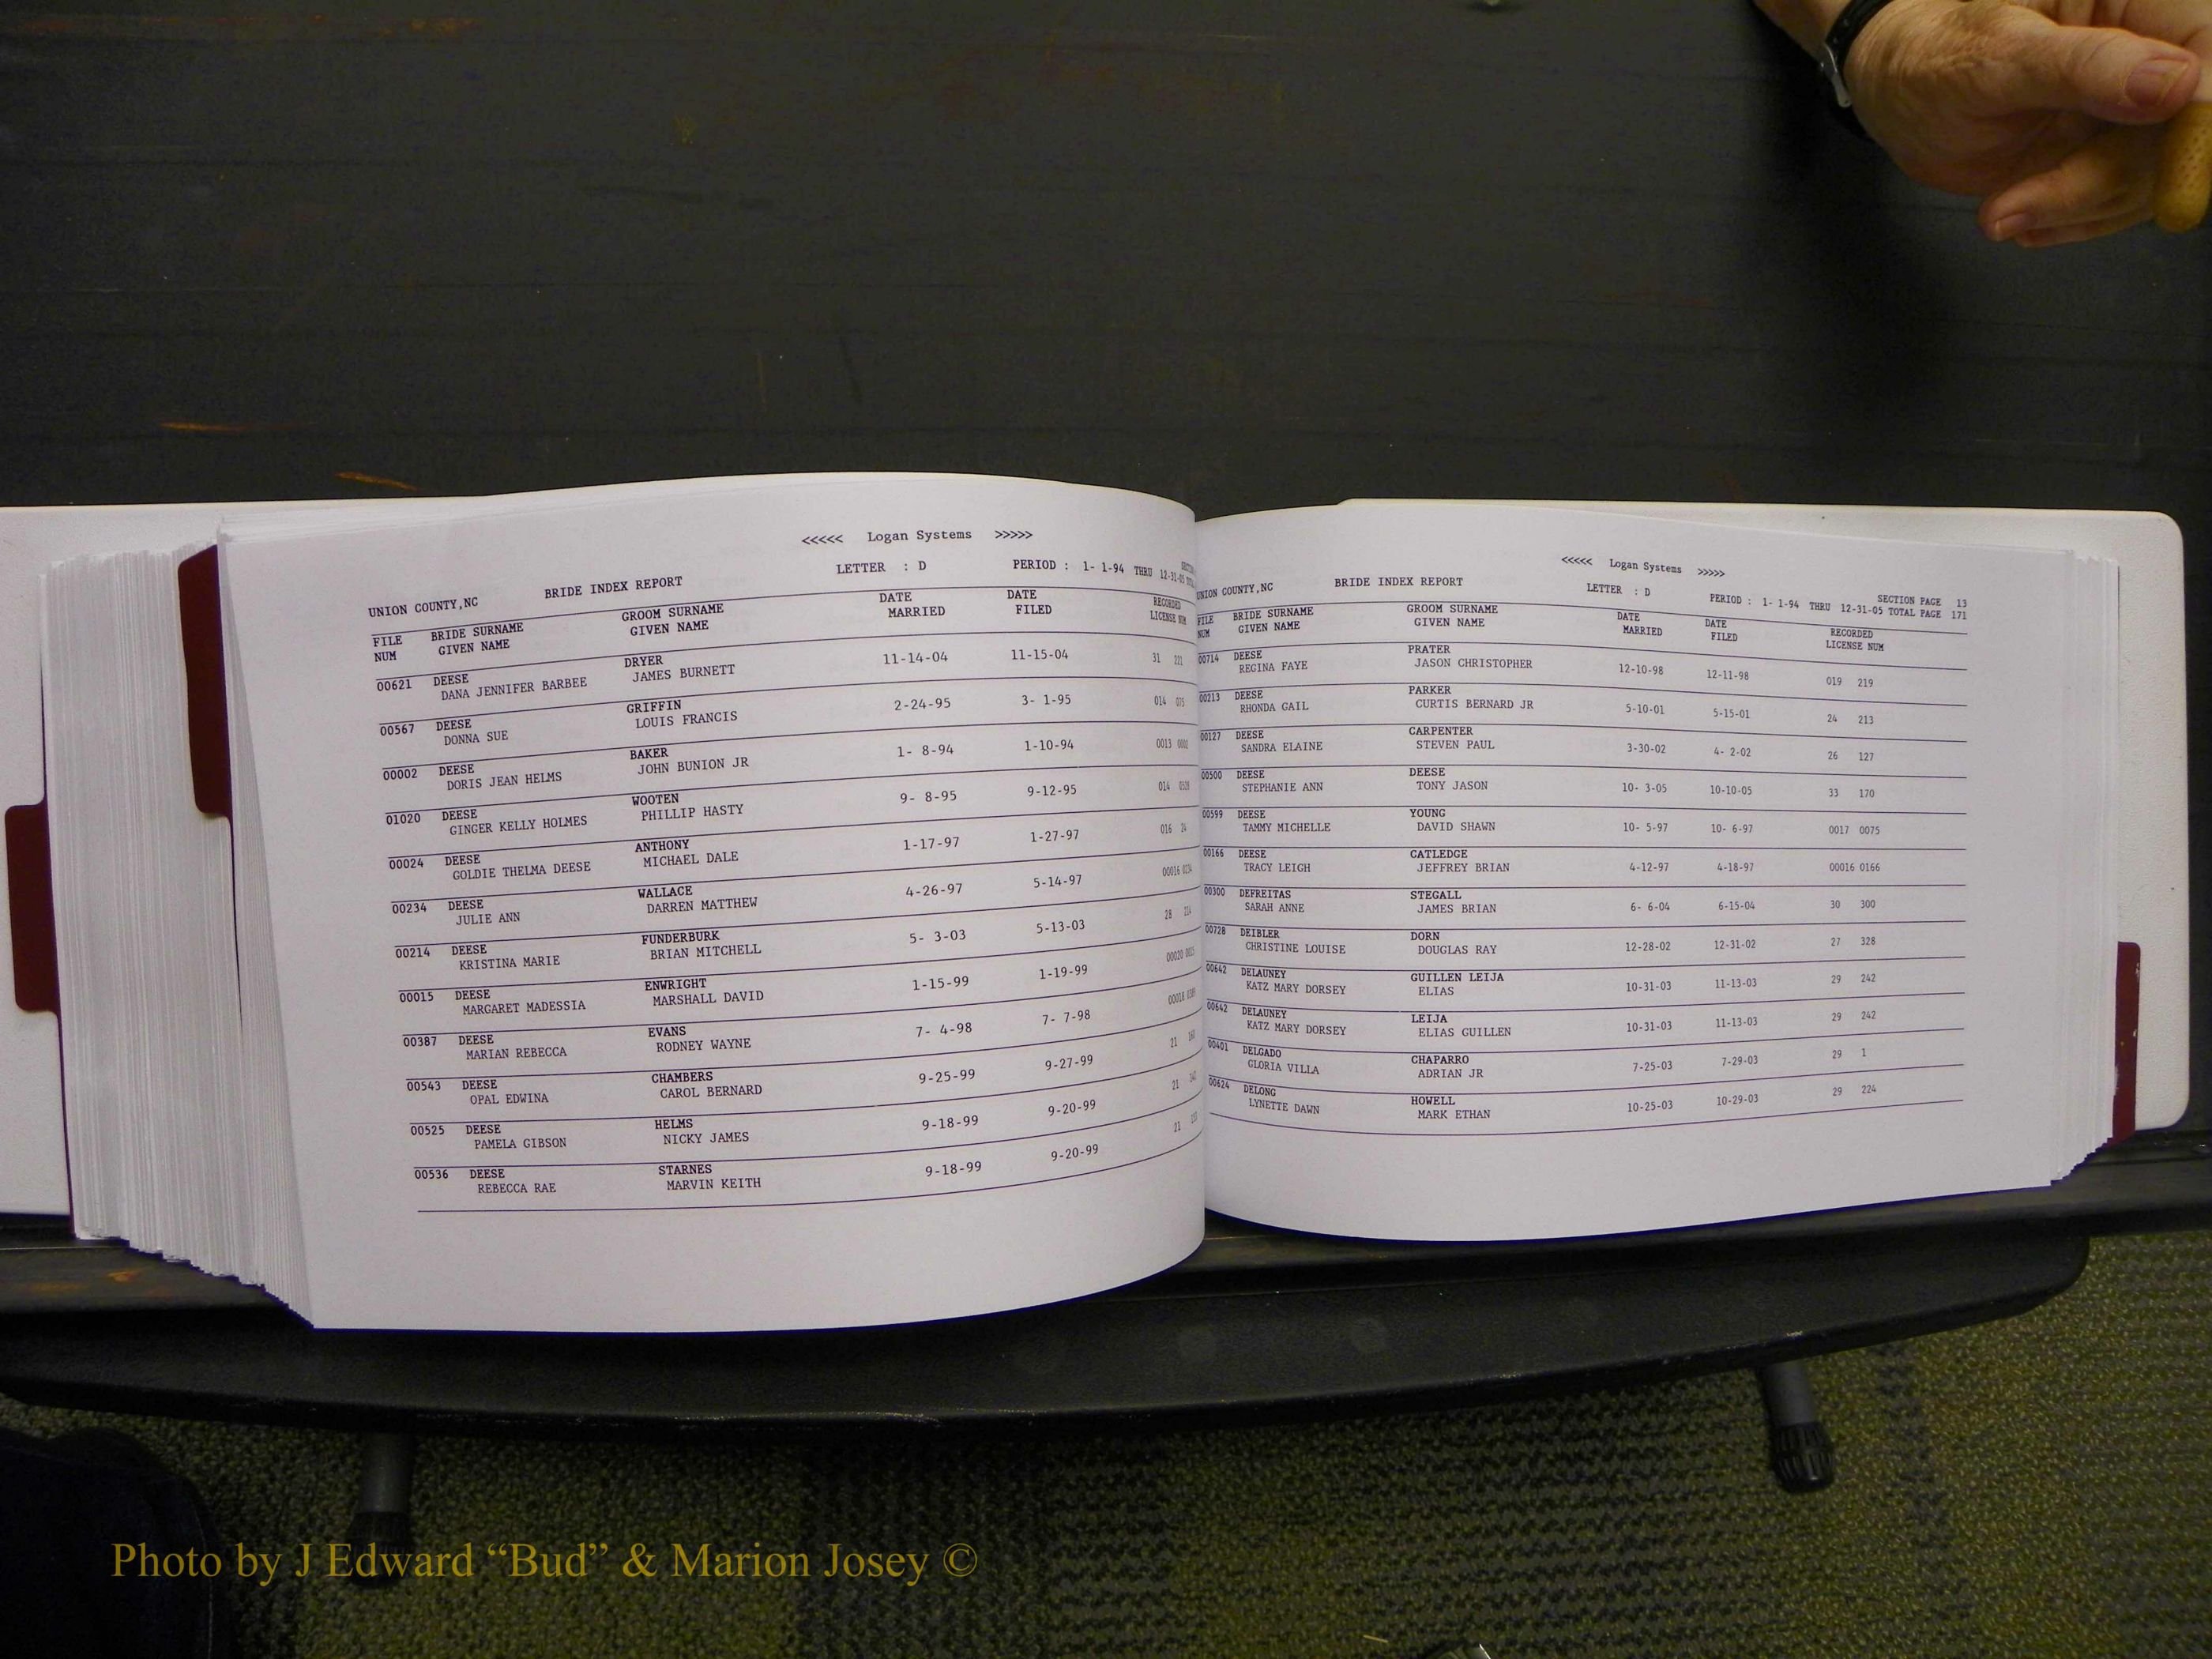 <<<<< Logan Systems >>>>>
UNION COUNTY,NC BRIDE INDEX REPORT LETTER : D PERIOD : 1- 1-94 THRU 12-31-05
FILE BRIDE SURNAME GROOM SURNAME DATE DATE RECORDED
NUM GIVEN NAME GIVEN NAME MARRIED FILED LICENSE NUM
00621 DEESE DRYER 11-14-04 11-15-04 31 221
DANA JENNIFER BARBEE JAMES BURNETT
00567 DEESE GRIFFIN 2-24-95 3- 1-95 014 075
DONNA SUE LOUIS FRANCIS
00002 DEESE BAKER 1- 8-94 1-10-94 0013 0002
DORIS JEAN HELMS JOHN BUNION JR
01020 DEESE WOOTEN 9- 8-95 9-12-95 014
GINGER KELLY HOLMES PHILLIP HASTY
00024 DEESE ANTHONY 1-17-97 1-27-97 016 24
GOLDIE THELMA DEESE MICHAEL DALE
00234 DEESE WALLACE 4-26-97 5-14-97 00016 0234
JULIE ANN DARREN MATTHEW
00214 DEESE FUNDERBURK 5- 3-03 5-13-03 28 214
KRISTINA MARIE BRIAN MITCHELL
00015 DEESE ENWRIGHT 1-15-99 1-19-99 00020 0015
MARGARET MADESSIA MARSHALL DAVID
00387 DEESE EVANS 7- 4-98 7- 7-98 00018
MARIAN REBECCA RODNEY WAYNE
00543 DEESE CHAMBERS 9-25-99 9-27-99 21
OPAL EDWINA CAROL BERNARD
00525 DEESE HELMS 9-18-99 9-20-99 21
PAMELA GIBSON NICKY JAMES
00536 DEESE STARNES 9-18-99 9-20-99 21
REBECCA RAE MARVIN KEITH
<<<<< Logan Systems >>>>>
UNION COUNTY,NC BRIDE INDEX REPORT LETTER : D SECTION PAGE 13
PERIOD : 1- 1-94 THRU 12-31-05 TOTAL PAGE 171
FILE BRIDE SURNAME GROOM SURNAME DATE DATE RECORDED
NUM GIVEN NAME GIVEN NAME MARRIED FILED LICENSE NUM
00714 DEESE PRATER 12-10-98 12-11-98 019 219
REGINA FAYE JASON CHRISTOPHER
00213 DEESE PARKER 5-10-01 5-15-01 24 213
RHONDA GAIL CURTIS BERNARD JR
00127 DEESE CARPENTER 3-30-02 4- 2-02 26 127
SANDRA ELAINE STEVEN PAUL
00500 DEESE DEESE 10- 3-05 10-10-05 33 170
STEPHANIE ANN TONY JASON
00599 DEESE YOUNG 10- 5-97 10- 6-97 0017 0075
TAMMY MICHELLE DAVID SHAWN
00166 DEESE CATLEDGE 4-12-97 4-18-97 00016 0166
TRACY LEIGH JEFFREY BRIAN
00300 DEFREITAS STEGALL 6- 6-04 6-15-04 30 300
SARAH ANNE JAMES BRIAN
00728 DEIBLER DORN 12-28-02 12-31-02 27 328
CHRISTINE LOUISE DOUGLAS RAY
00642 DELAUNEY GUILLEN LEIJA 10-31-03 11-13-03 29 242
KATZ MARY DORSEY ELIAS
00642 DELAUNEY LEIJA 10-31-03 11-13-03 29 242
KATZ MARY DORSEY ELIAS GUILLEN
00401 DELGADO CHAPARRO 7-25-03 7-29-03 29 1
GLORIA VILLA ADRIAN JR
00624 DELONG HOWELL 10-25-03 10-29-03 29 224
LYNETTE DAWN MARK ETHAN
Photo by J Edward “Bud” & Marion Josey ©